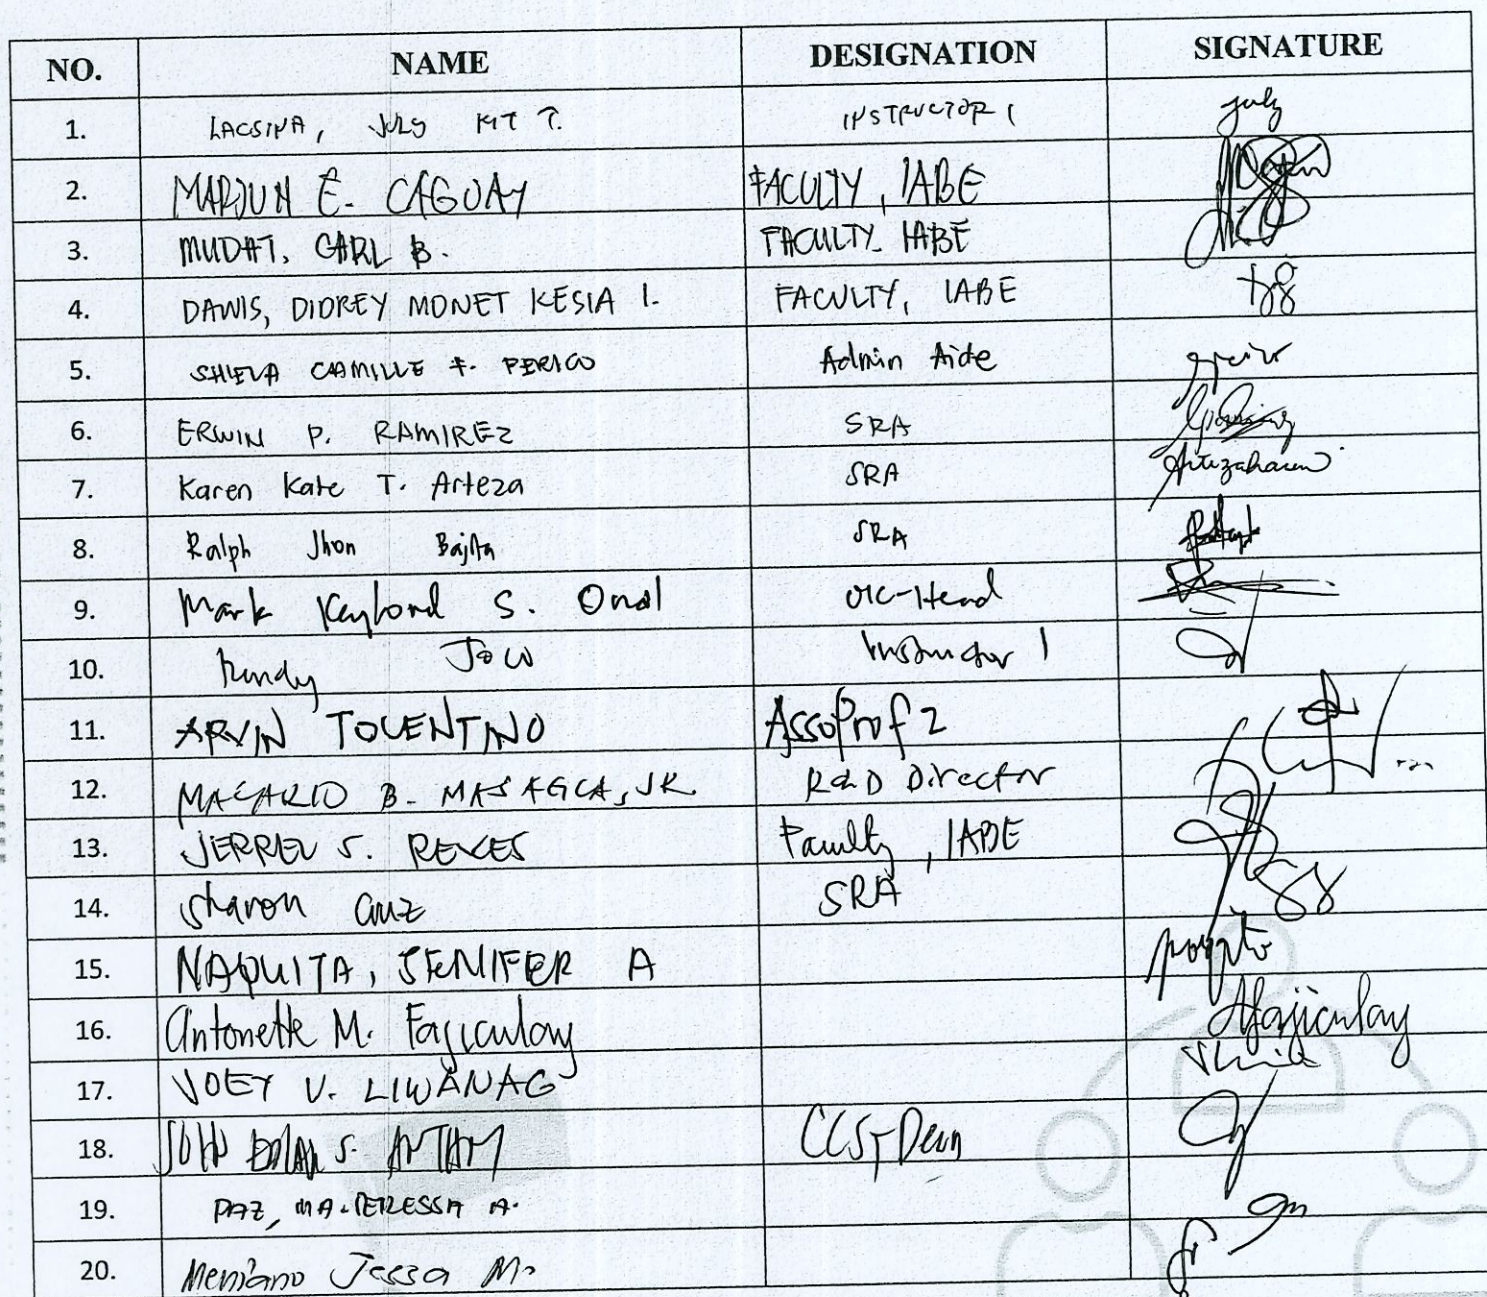 NO. NAME DESIGNATION SIGNATURE
1. LACSINA, JULY KIT T. INSTRUCTOR I July
2. MARJUN E. CAGUAY FACULTY, IABE
3. MUDAT, CARL B. FACULTY IABE
4. DAWIS, DIDREY MONET KESIA I. FACULTY, IABE
5. SHIELA CAMILLE F. PERICO Admin Aide
6. ERWIN P. RAMIREZ SRA
7. Karen Kate T. Arteza SRA
8. Ralph Jhon Bajita SRA
9. Mark Keylord S. Onal OIC-Head
10. Randy Joco Instructor 1
11. ARVIN TOLENTINO AssoProf 2
12. MACARIO B. MASAGCA, JR. R&D Director
13. JERREL S. REYES Faculty, IABE
14. Sharon Cruz SRA
15. NAQUITA, JENIFER A
16. Antonette M. Fajiculay Afajiculay
17. JOEY V. LIWANAG
18. JOHN S. CCST Dean
19. PAZ, MA. TERESSA A.
20. Meniano Jessa M.